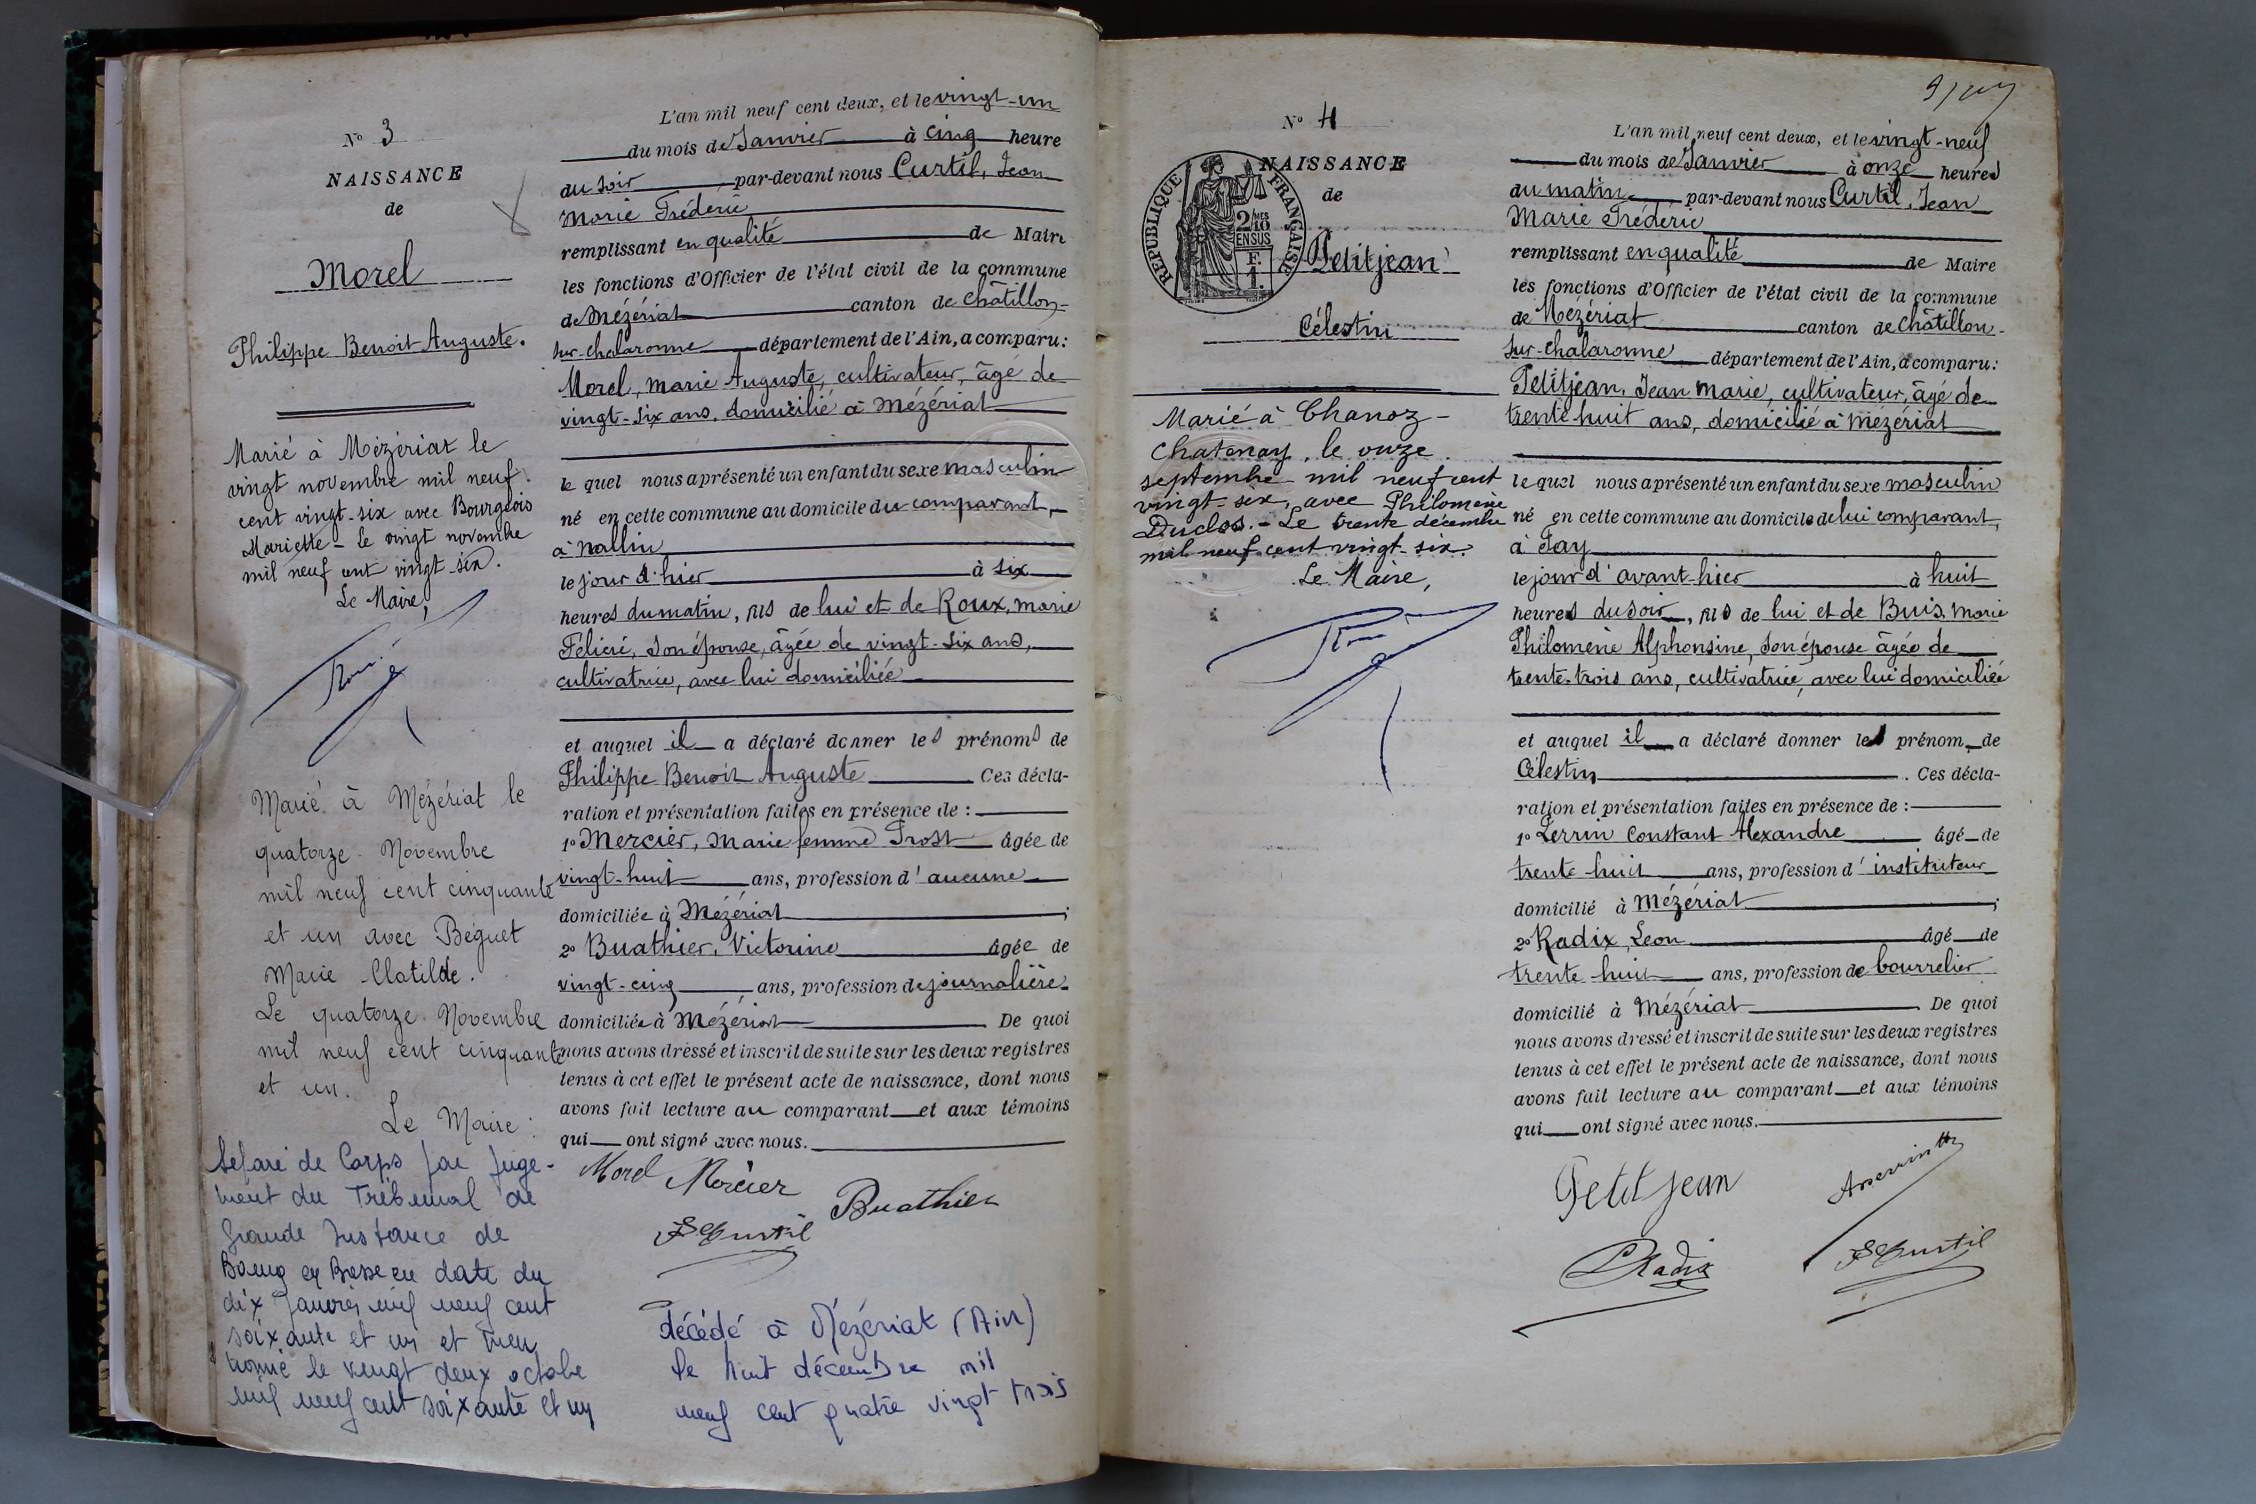 N° 3
NAISSANCE
de
Morel
Philippe Benoit Auguste.
Marié à Mézériat le
vingt novembre mil neuf
cent vingt-six avec Bourgeois
Mariette - Le vingt novembre
mil neuf cent vingt-six.
Le Maire,
Marié à Mézériat le
quatorze Novembre
mil neuf cent cinquante
et un avec Béguet
Marie Clotilde.
Le quatorze Novembre
mil neuf cent cinquante
et un.
Le Maire :
Séparé de Corps par juge-
ment du Tribunal de
Grande Instance de
Bourg en Bresse en date du
dix Janvier mil neuf cent
soixante et un et
le vingt deux octobre
mil neuf cent soixante et un
L'an mil neuf cent deux, et le vingt-un
du mois de Janvier à cinq heure
du soir par-devant nous Curtil, Jean
Marie Fréderic
remplissant en qualité de Maire
les fonctions d'Officier de l'état civil de la commune
de Mézériat canton de Châtillon-
sur-chalaronne département de l'Ain, a comparu:
Morel, Marie Auguste, cultivateur, âgé de
vingt-six ans, domicilié à Mézériat
le quel nous a présenté un enfant du sexe masculin
né en cette commune au domicile du comparant,
à Nallin
le jour d'hier à six
heures du matin, fils de lui et de Roux, marie
Félicie, son épouse, âgée de vingt-six ans,
cultivatrice, avec lui domiciliée
et auquel il a déclaré donner les prénoms de
Philippe Benoit Auguste Ces décla-
ration et présentation faites en présence de :
1° Mercier, Marie femme Prost âgée de
vingt-huit ans, profession d'aucune
domiciliée à Mézériat ;
2° Buathier, Victorine âgée de
vingt-cinq ans, profession de journalière
domiciliée à Mézériat De quoi
nous avons dressé et inscrit de suite sur les deux registres
tenus à cet effet le présent acte de naissance, dont nous
avons fait lecture au comparant et aux témoins
qui ont signé avec nous.
Morel Mercier
Buathier
Curtil
décédé à Mézériat (Ain)
le huit décembre mil
neuf cent quatre vingt trois
N° 4
NAISSANCE
de
RÉPUBLIQUE FRANÇAISE
2/10MES
EN SUS
F.
1.
Petitjean
Célestin
Marié à Chanoz-
Chatenay, le onze
septembre mil neuf cent
vingt-six, avec Philomène
Duclos. - Le trente décembre
mil neuf cent vingt-six.
Le Maire,
L'an mil neuf cent deux, et le vingt-neuf
du mois de Janvier à onze heures
du matin par-devant nous Curtil, Jean
Marie Fréderic
remplissant en qualité de Maire
les fonctions d'Officier de l'état civil de la commune
de Mézériat canton de Châtillon-
sur-chalaronne département de l'Ain, a comparu:
Petitjean, Jean Marie, cultivateur, âgé de
trente huit ans, domicilié à Mézériat
le quel nous a présenté un enfant du sexe masculin
né en cette commune au domicile de lui comparant,
à Fay
le jour d'avant-hier à huit
heures du soir, fils de lui et de Buis, Marie
Philomène Alphonsine, son épouse âgée de
trente-trois ans, cultivatrice, avec lui domiciliée
et auquel il a déclaré donner le prénom de
Célestin . Ces décla-
ration et présentation faites en présence de :
1° Perrin Constant Alexandre âgé de
trente huit ans, profession d'instituteur
domicilié à Mézériat ;
2° Radix, Leon âgé de
trente huit ans, profession de bourrelier
domicilié à Mézériat De quoi
nous avons dressé et inscrit de suite sur les deux registres
tenus à cet effet le présent acte de naissance, dont nous
avons fait lecture au comparant et aux témoins
qui ont signé avec nous.
Petitjean
Radix
Curtil